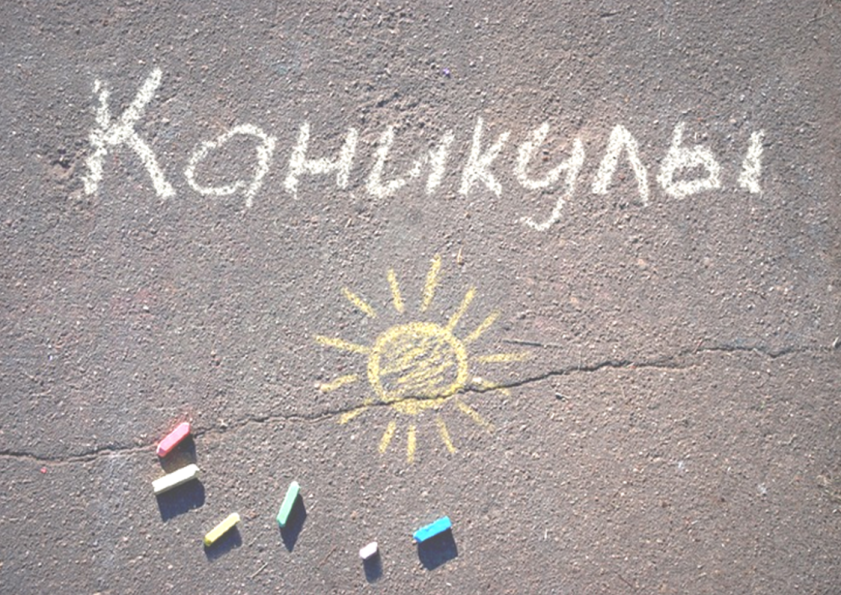 Каникулы